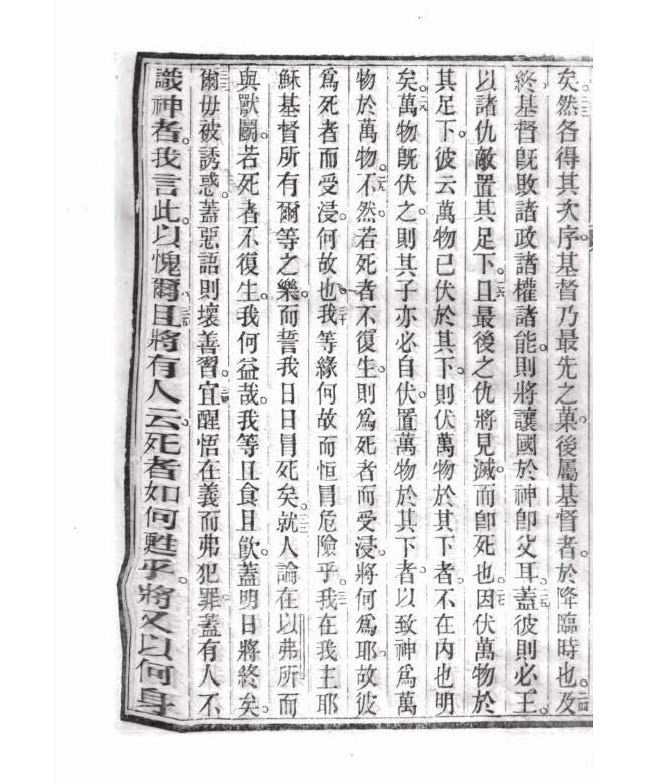 矣。二三然各得其次序。基督乃最先之菓。後屬基督者。於降臨時也。二四及
終基督旣敗諸政諸權諸能。則將讓國於神卽父耳。二五蓋彼則必王。
以諸仇敵置其足下。二六且最後之仇將見滅。而卽死也。二七因伏萬物於
其足下。彼云萬物已伏於其下。則伏萬物於其下者。不在內也明
矣。二八萬物旣伏之。則其子亦必自伏。置萬物於其下者。以致神爲萬
物於萬物。二九不然。若死者不復生。則爲死者而受浸。將何爲耶。故彼
爲死者而受浸。何故也。三十我等緣何故而恒冒危險乎。三一我在我主耶
穌基督所有爾等之樂。而誓我日日冒死矣。三二就人論在以弗所而
與獸鬬。若死者不復生。我何益哉。我等且食且飲。蓋明日將終矣。
三三爾毋被誘惑。蓋惡語則壞善習。三四宜醒悟在義而弗犯罪。蓋有人不
識神者。我言此。以愧爾。三五且將有人云。死者如何甦乎。將又以何身